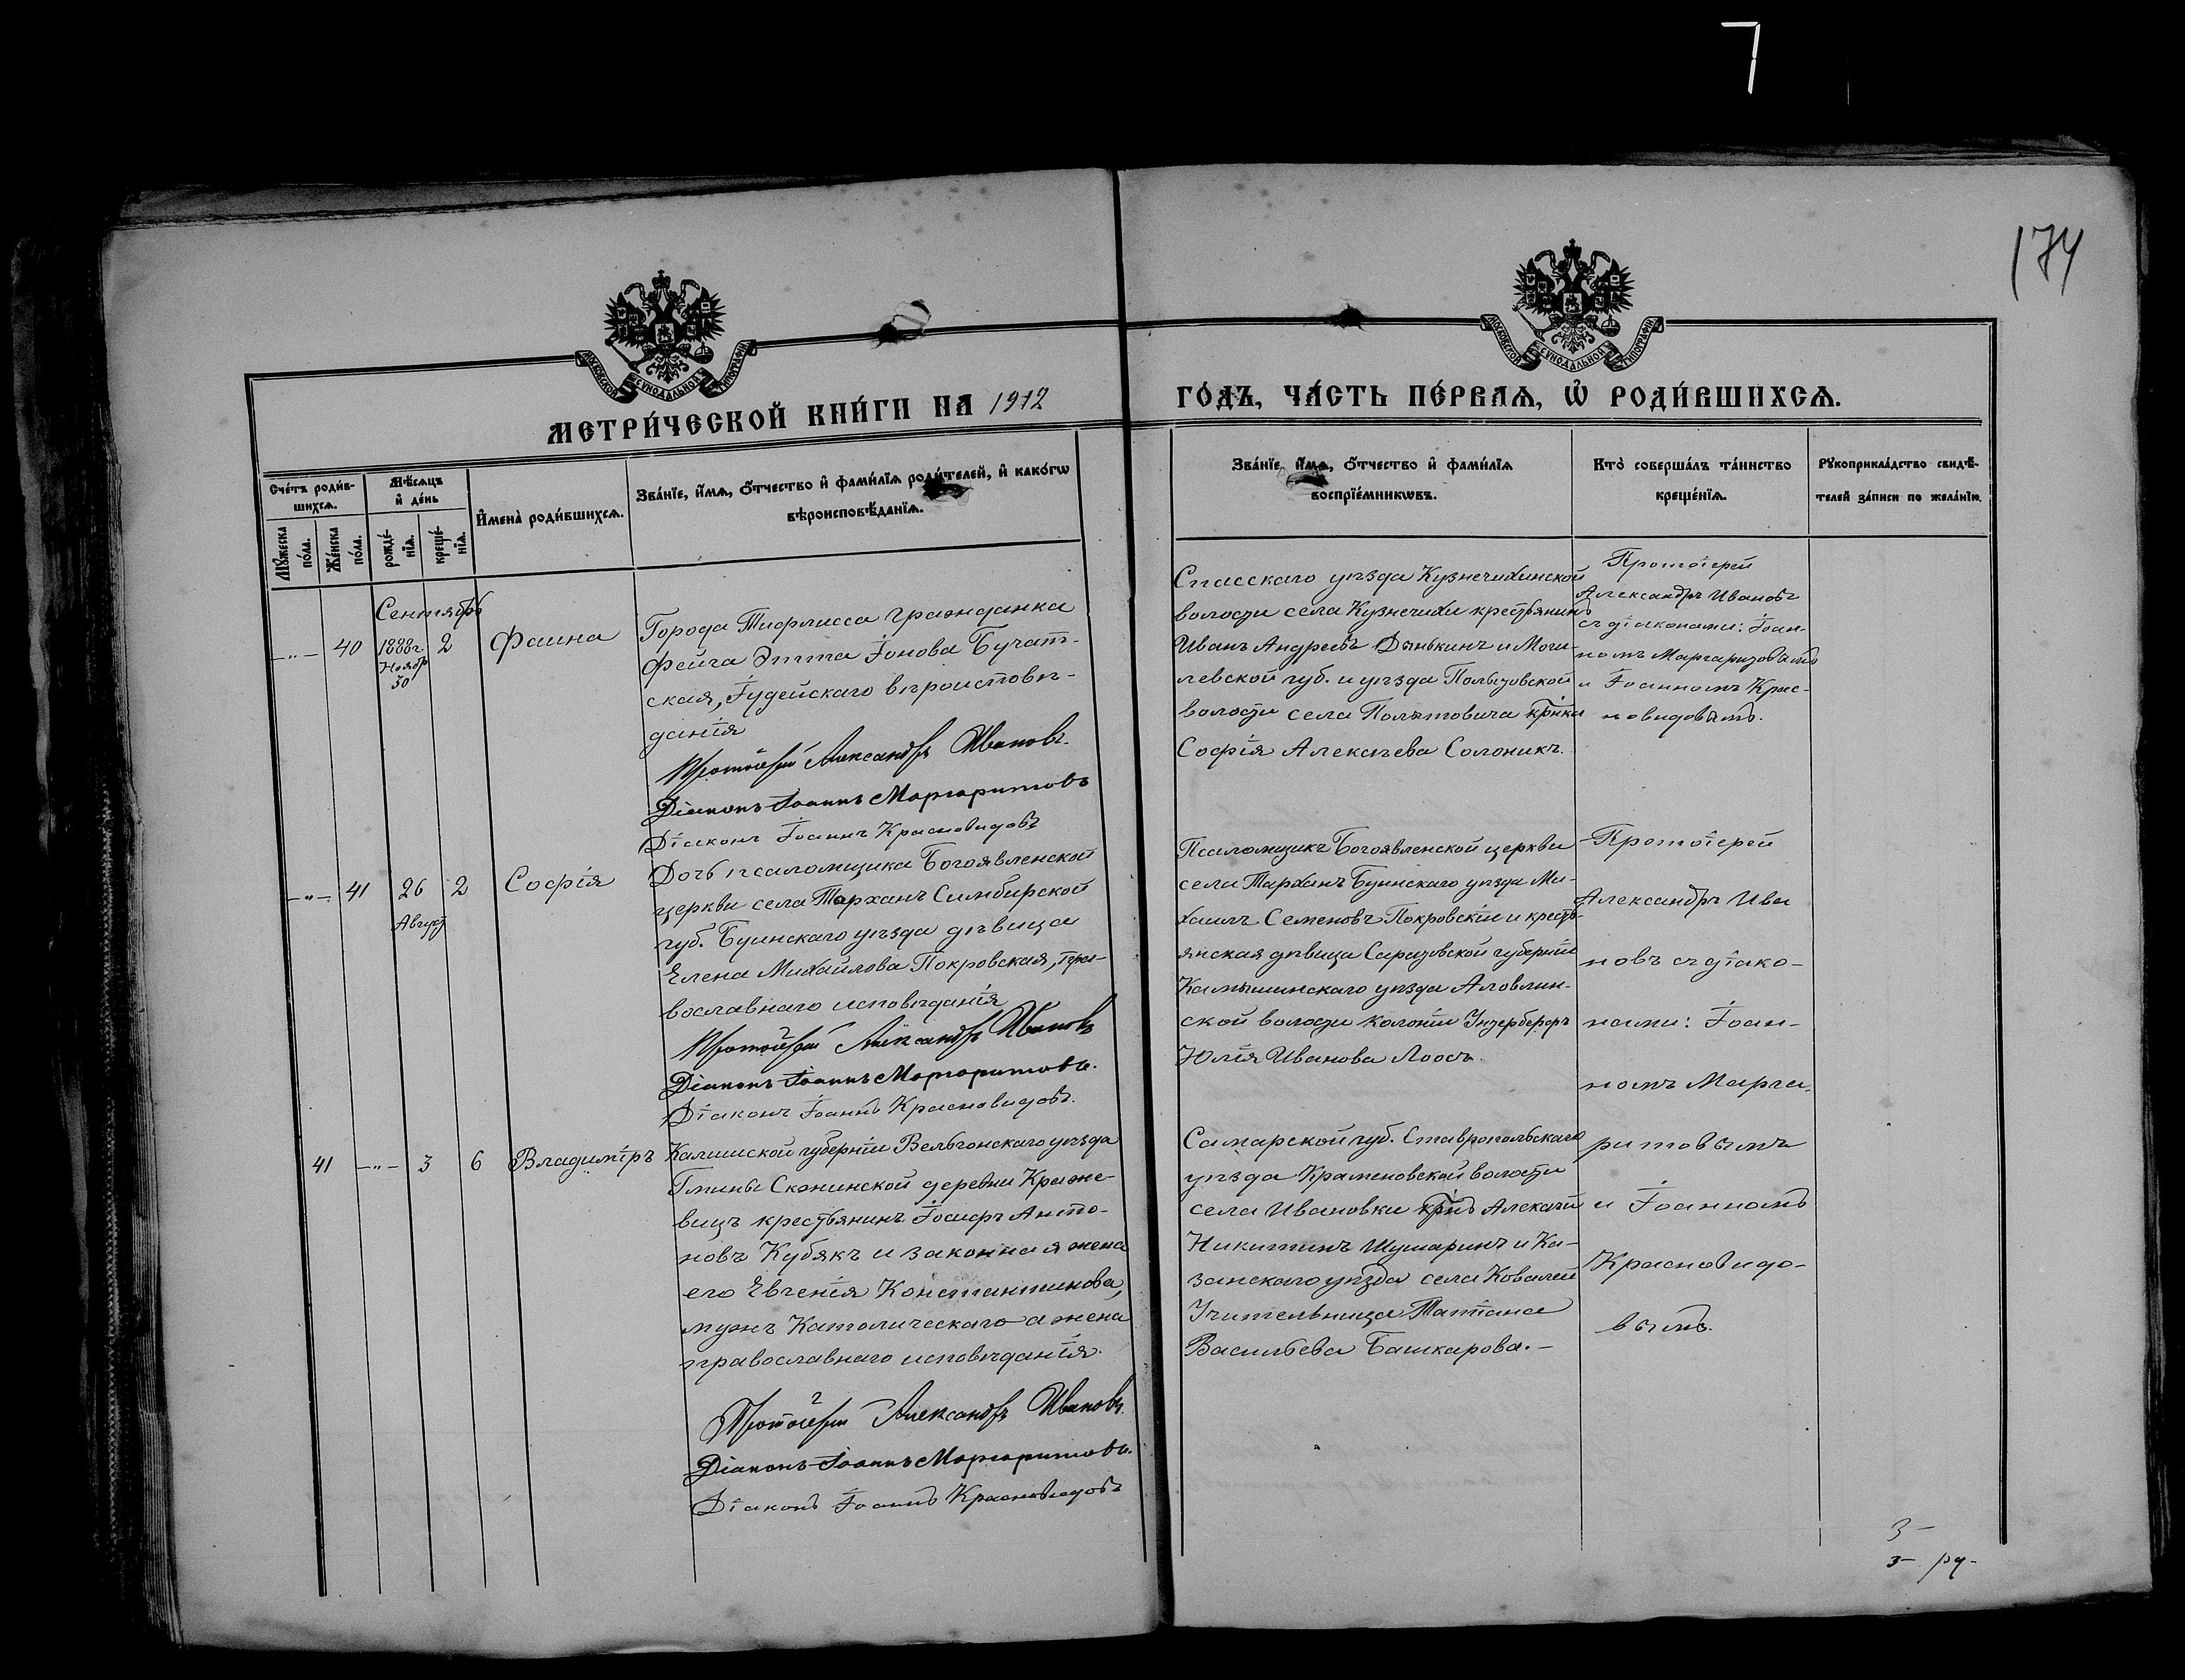 7
174
МОСКОВСКОЙ СУНОДАЛЬНОЙ ТИПОГРАФІИ
МОСКОВСКОЙ СУНОДАЛЬНОЙ ТИПОГРАФІИ
МЕТРИ́ЧЕСКОЙ КНИ́ГИ НА 1912
ГО́ДЪ, ЧА́СТЬ ПЕ́РВАѦ, Ѡ҆ РОДИ́ВШИХСѦ.
Сче́тъ роди́в-
шихсѧ.
Мꙋ́жеска
по́ла.
Же́нска
по́ла.
Мѣ́сѧцъ
и҆ де́нь
рожде́-
нїѧ.
креще́-
нїѧ.
И҆мена̀ роди́вшихсѧ.
Зва́нїе, и҆́мѧ, ѻ҆́тчество и҆ фами́лїѧ роди́телей, и҆ како́гѡ
вѣроисповѣ́данїѧ.
Зва́нїе, и҆́мѧ, ѻ҆́тчество и҆ фами́лїѧ
воспрїе́мникѡвъ.
Кто̀ соверша́лъ та́инство
креще́нїѧ.
Рꙋкоприкла́дство свидѣ́-
телей за́писи по жела́нїю.
Сентябрь
-"- 40
1888г.
Ноябр
30
2
Фаина
Города Тифлисса гражданка
Фейга Этта Іонова Бучат-
ская, Іудейскаго вѣроисповѣ-
данія
Протоіерей Александръ Ивановъ.
Діаконъ Іоаннъ Маргаритовъ
Діаконъ Іоаннъ Красновидовъ
Спасскаго уѣзда Кузнечихинской
волости села Кузнечихи крестьянинъ
Иванъ Андреевъ Дынькинъ и Моги-
левской губ. и уѣзда
волости села кр‑нка
Софія Алексѣева Солоникъ.
Протоіерей
Александръ Ивановъ
съ діаконами: Іоан-
номъ Маргаритовымъ
и Іоанномъ Крас-
новидовымъ.
-"- 41
26
Август
2
Софія
Дочь псаломщика Богоявленской
церкви села Тарханъ Симбирской
губ. Буинскаго уѣзда дѣвица
Елена Михайлова Покровская, пра-
вославнаго исповѣданія
Протоіерей Александръ Ивановъ
Діаконъ Іоаннъ Маргаритовъ.
Діаконъ Іоаннъ Красновидовъ.
Псаломщикъ Богоявленской церкви
села Тарханъ Буинскаго уѣзда Ми-
хаилъ Семеновъ Покровскій и кресть-
янская дѣвица Саратовской губерніи
Камышинскаго уѣзда Аловлин-
ской волости колоніи Унтердорфъ
Юлія Иванова Лоосъ.
Протоіерей
Александръ Ива
новъ съ діако-
нами: Іоан-
номъ Марга
ритовымъ
и Іоанномъ
Красновидо-
вымъ.
41 -"-
3
6
Владиміръ
Калишской губерніи Вельгонскаго уѣзда
Гмины Скжинской деревни Краже-
вицъ крестьянинъ Іосифъ Анто-
новъ Кубякъ и законная жена
его Евгенія Константинова,
мужъ Католическаго а жена
православнаго исповѣданія.
Протоіерей Александръ Ивановъ.
Діаконъ Іоаннъ Маргаритовъ.
Діаконъ Іоаннъ Красновидовъ
Самарской губ. Ставропольскаго
уѣзда волости
села Ивановки кр‑нъ Алексѣй
Никитинъ Шушаринъ и Ка-
занскаго уѣзда села Ковалей
Учительница Татіана
Васильева Башкарова.-
3-
3- ру-